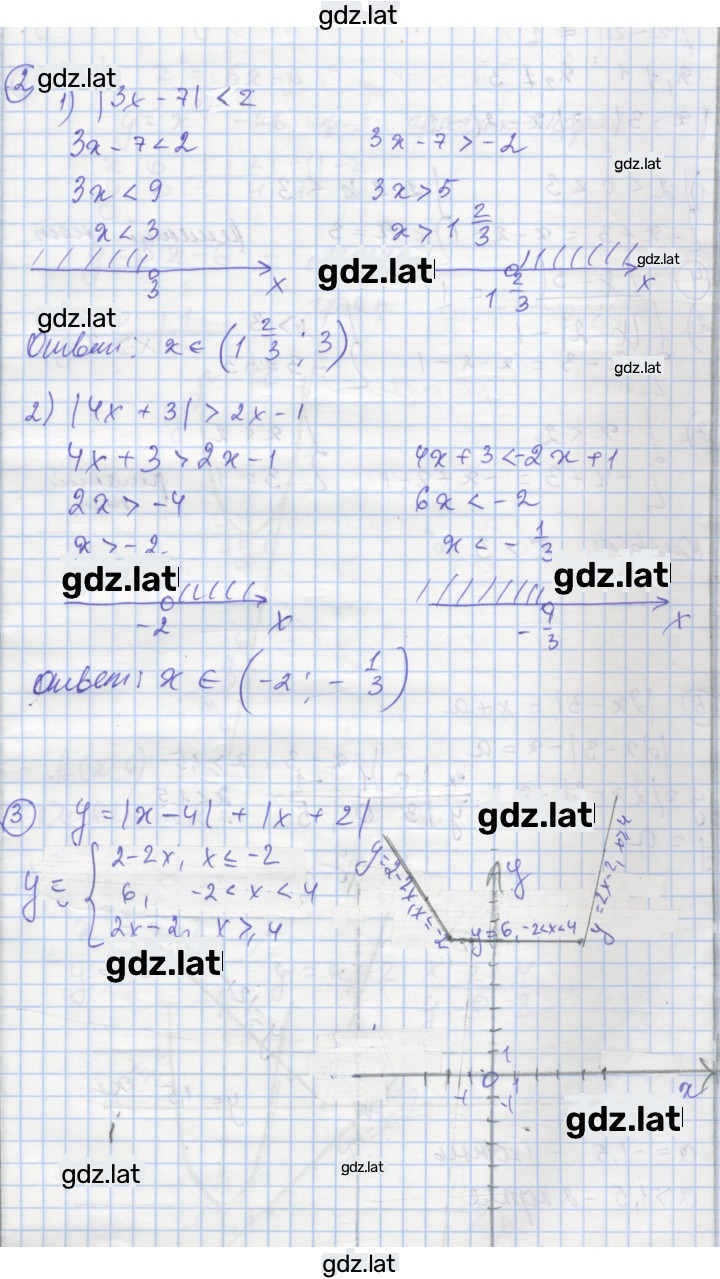 gdz.lat
② gdz.lat
1) |3x - 7| < 2
3x - 7 < 2 3x - 7 > -2
gdz.lat
3x < 9 3x > 5
x < 3 x > 1 2/3
gdz.lat gdz.lat
3 x 1 2/3 x
gdz.lat
Ответ: x ∈ (1 2/3 ; 3)
gdz.lat
2) |4x + 3| > 2x - 1
4x + 3 > 2x - 1 4x + 3 < -2x + 1
2x > -4 6x < -2
x > -2 x < - 1/3
gdz.lat gdz.lat
-2 x - 1/3 x
Ответ: x ∈ (-2 ; - 1/3)
③ y = |x - 4| + |x + 2|
gdz.lat
y = { 2-2x, x ≤ -2
6, -2 < x < 4
2x-2, x ≥ 4
gdz.lat
y
y=2-2x, x ≤ -2
y=6, -2<x<4
y=2x-2, x≥4
1
-1 0 1 x
-1
gdz.lat
gdz.lat
gdz.lat
gdz.lat